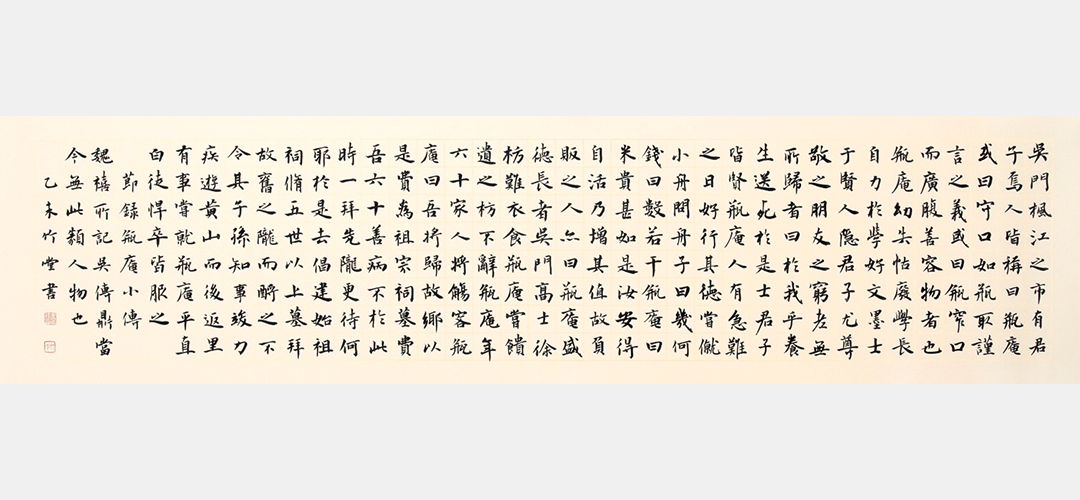 吳門楓江之市有君
子焉人皆稱曰瓶庵
或曰守口如瓶取謹
言之義或曰瓶窄口
而廣腹善容物者也
瓶庵幼失怙廢學長
自力於學好文墨士
于賢人隱君子尤尊
敬之朋友之窮老無
所歸者曰於我乎養
生送死於是士君子
皆賢瓶庵人有急難
之日好行其德嘗僦
小舟問舟子曰幾何
錢曰數若干瓶庵曰
米貴甚如是汝安得
自活乃增其值故負
販之人亦曰瓶庵盛
德長者吳門高士徐
枋難衣食瓶庵嘗饋
遺之枋不辭瓶庵年
六十家人將觴客瓶
庵曰吾將歸故鄉以
是費為祖宗祠墓費
吾六十善病不於此
時一拜先隴更待何
耶於是去倡建始祖
祠脩五世以上墓拜
故舊之隴而酹之不
令其子孫知事竣力
疾遊黃山而後返里
有事嘗就瓶庵平直
白徒悍卒皆服之
節錄瓶庵小傳
魏禧所記吳傳鼎當
今無此類人物也
乙未竹堂書